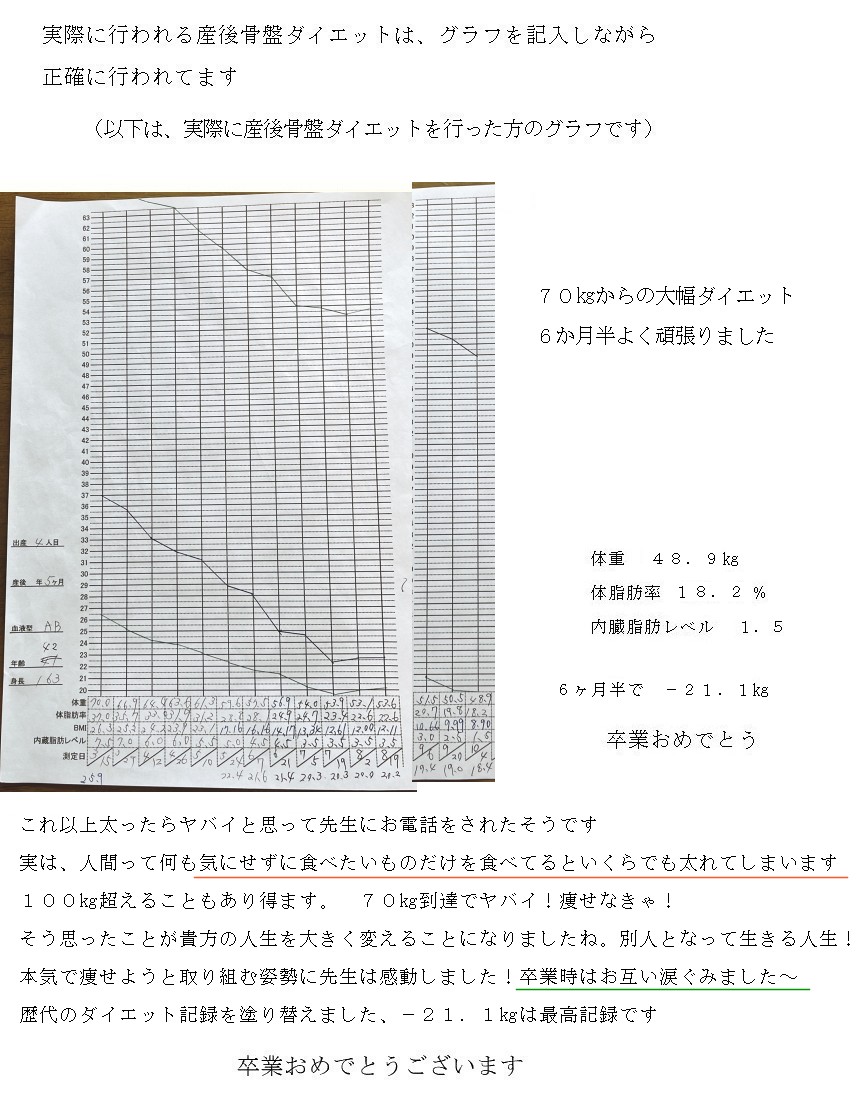 実際に行われる産後骨盤ダイエットは、グラフを記入しながら
正確に行われてます
（以下は、実際に産後骨盤ダイエットを行った方のグラフです）
63
62
61
60
59
58
57
56
55
54
53
52
51
50
49
48
47
46
45
44
43
42
41
40
39
38
37
36
35
34
33
32
31
30
29
28
27
26
25
24
23
22
21
20
出産 4人目
産後 年5ヶ月
血液型 AB
42
年齢 41
身長 163
体重 70.0 66.9 64.4 63.6 61.3 59.6 57.5 56.9 54.0 53.9 53.1 53.6
体脂肪率 37.0 35.7 33.0 31.9 31.2 28.8 28.1 24.9 24.7 23.4 22.6 22.6
BMI 26.3 25.2 24.2 23.9 23.1 17.16 16.16 14.17 13.34 12.61 12.00 12.11
内臓脂肪レベル 7.5 7.0 6.0 6.0 5.5 5.0 4.5 4.5 3.5 3.5 3.5 3.5
測定日
25.9 22.4 21.6 21.4 20.3 20.3 20.0 20.2
51.5 50.5 48.9
20.7 19.8 18.2
10.66 9.99 8.90
3.0 2.0 1.5
19.4 19.0 18.4
７０㎏からの大幅ダイエット
６か月半よく頑張りました
体重 ４８．９㎏
体脂肪率 １８．２ %
内臓脂肪レベル １．５
６ヶ月半で －２１．１㎏
卒業おめでとう
これ以上太ったらヤバイと思って先生にお電話をされたそうです
実は、人間って何も気にせずに食べたいものだけを食べてるといくらでも太れてしまいます
１００㎏超えることもあり得ます。 ７０㎏到達でヤバイ！痩せなきゃ！
そう思ったことが貴方の人生を大きく変えることになりましたね。別人となって生きる人生！
本気で痩せようと取り組む姿勢に先生は感動しました！卒業時はお互い涙ぐみました～
歴代のダイエット記録を塗り替えました、－２１．１㎏は最高記録です
卒業おめでとうございます